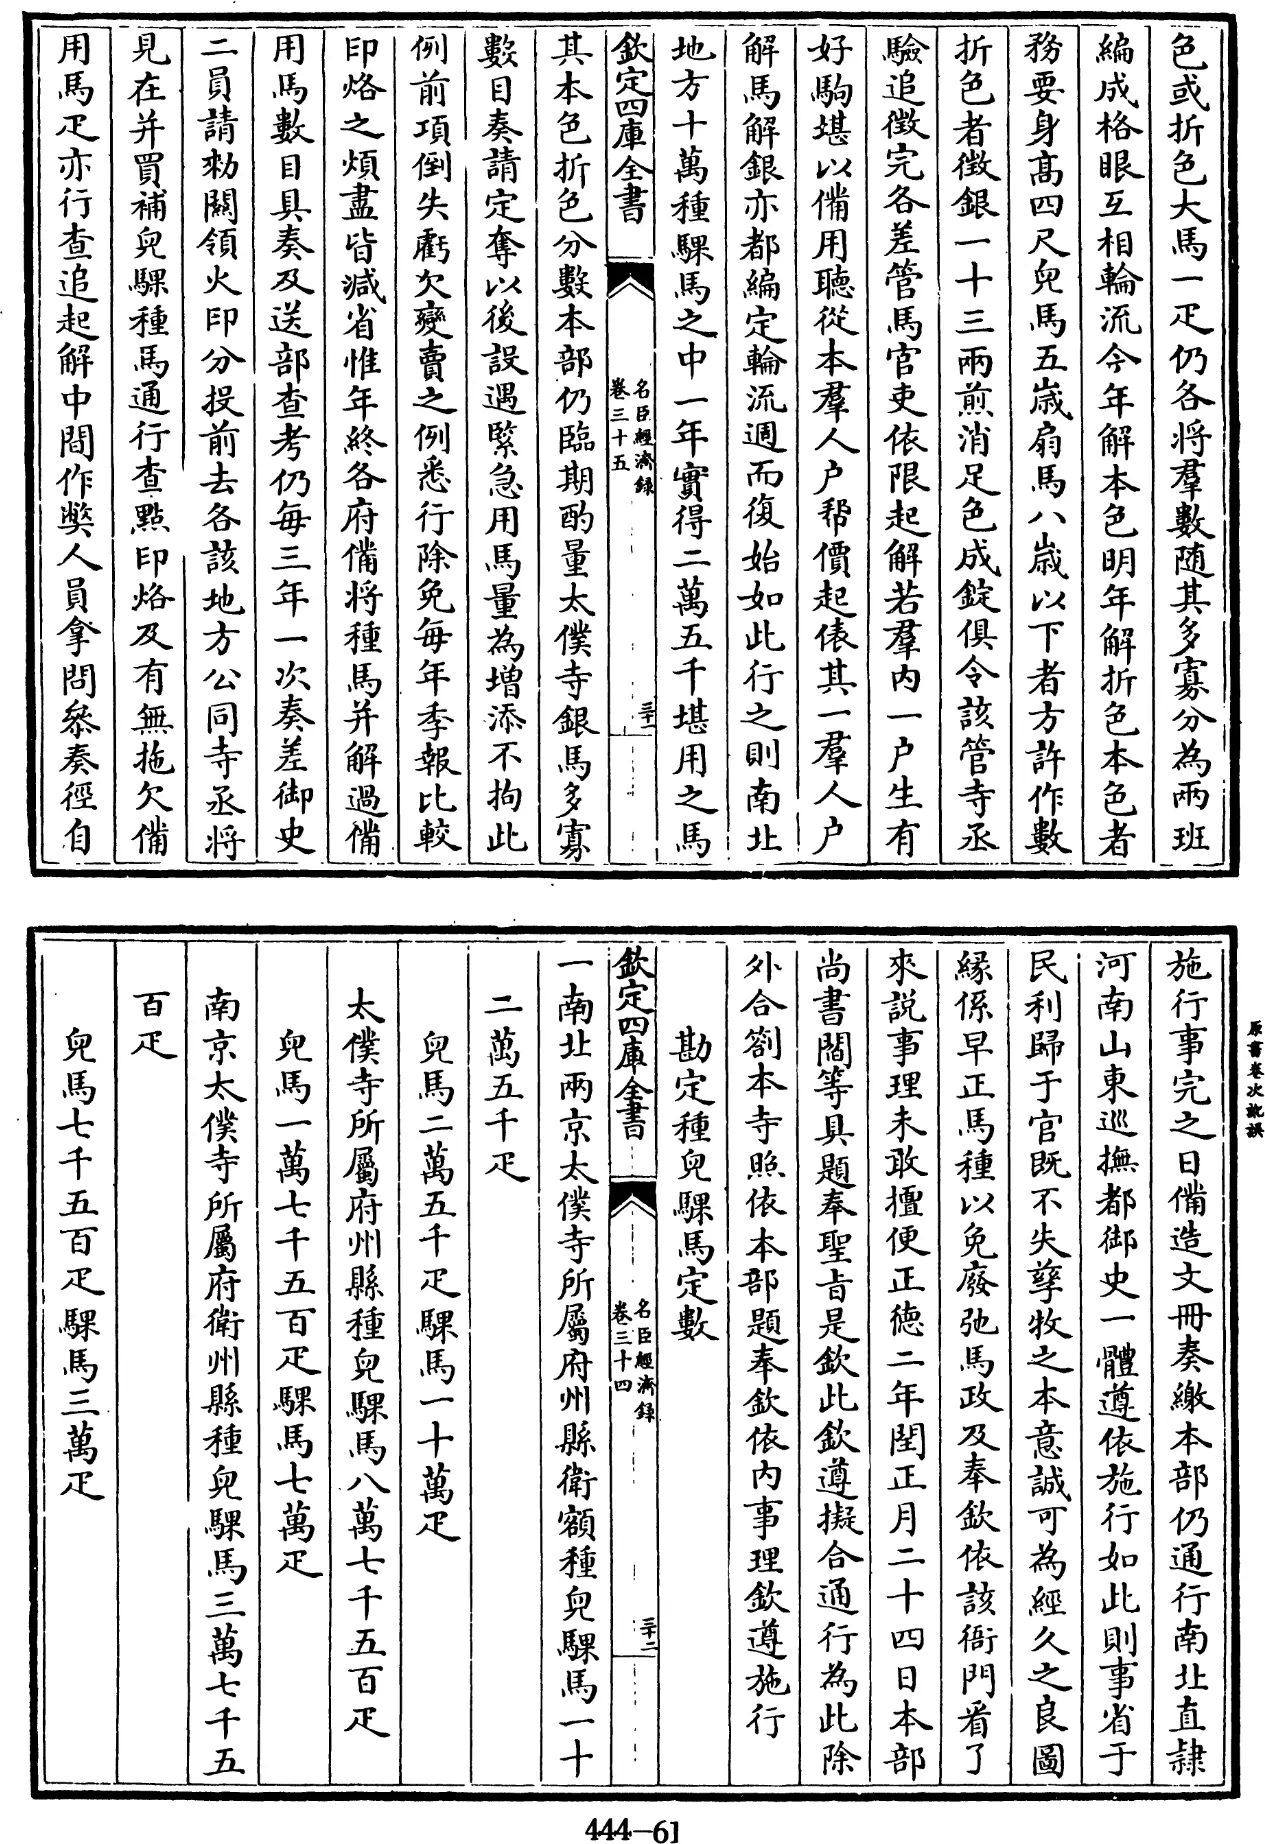 色或折色大馬一疋仍各將羣數隨其多寡分為兩班
編成格眼互相輪流今年解本色明年解折色本色者
務要身髙四尺兒馬五歲扇馬八歲以下者方許作數
折色者徵銀一十三兩煎消足色成錠俱令該管寺丞
驗追徵完各差管馬官吏依限起解若羣内一户生有
好駒堪以備用聽從本羣人户幇價起俵其一羣人户
解馬解銀亦都編定輪流週而復始如此行之則南北
地方十萬種騍馬之中一年實得二萬五千堪用之馬
欽定四庫全書
名臣經濟録
卷三十五
三十一
其本色折色分數本部仍臨期酌量太僕寺銀馬多寡
數目奏請定奪以後設遇緊急用馬量為增添不拘此
例前項倒失虧欠變賣之例悉行除免每年季報比較
印烙之煩盡皆減省惟年終各府備將種馬并解過備
用馬數目具奏及送部查考仍每三年一次奏差御史
二員請勅關領火印分投前去各該地方公同寺丞將
見在并買補兒騍種馬通行查㸃印烙及有無拖欠備
用馬疋亦行查追起解中間作弊人員拿問叅奏徑自
施行事完之日備造文冊奏繳本部仍通行南北直隸
河南山東巡撫都御史一體遵依施行如此則事省于
民利歸于官既不失孳牧之本意誠可為經久之良圖
緣係早正馬種以免廢弛馬政及奉欽依該衙門看了
來說事理未敢擅便正德二年閏正月二十四日本部
尚書閻等具題奉聖旨是欽此欽遵擬合通行為此除
外合劄本寺照依本部題奉欽依内事理欽遵施行
勘定種兒騍馬定數
欽定四庫全書
名臣經濟録
卷三十四
三十二
一南北兩京太僕寺所屬府州縣衛額種兒騍馬一十
二萬五千疋
兒馬二萬五千疋騍馬一十萬疋
太僕寺所屬府州縣種兒騍馬八萬七千五百疋
兒馬一萬七千五百疋騍馬七萬疋
南京太僕寺所屬府衛州縣種兒騍馬三萬七千五
百疋
兒馬七千五百疋騍馬三萬疋
原書卷次訛誤
444-61